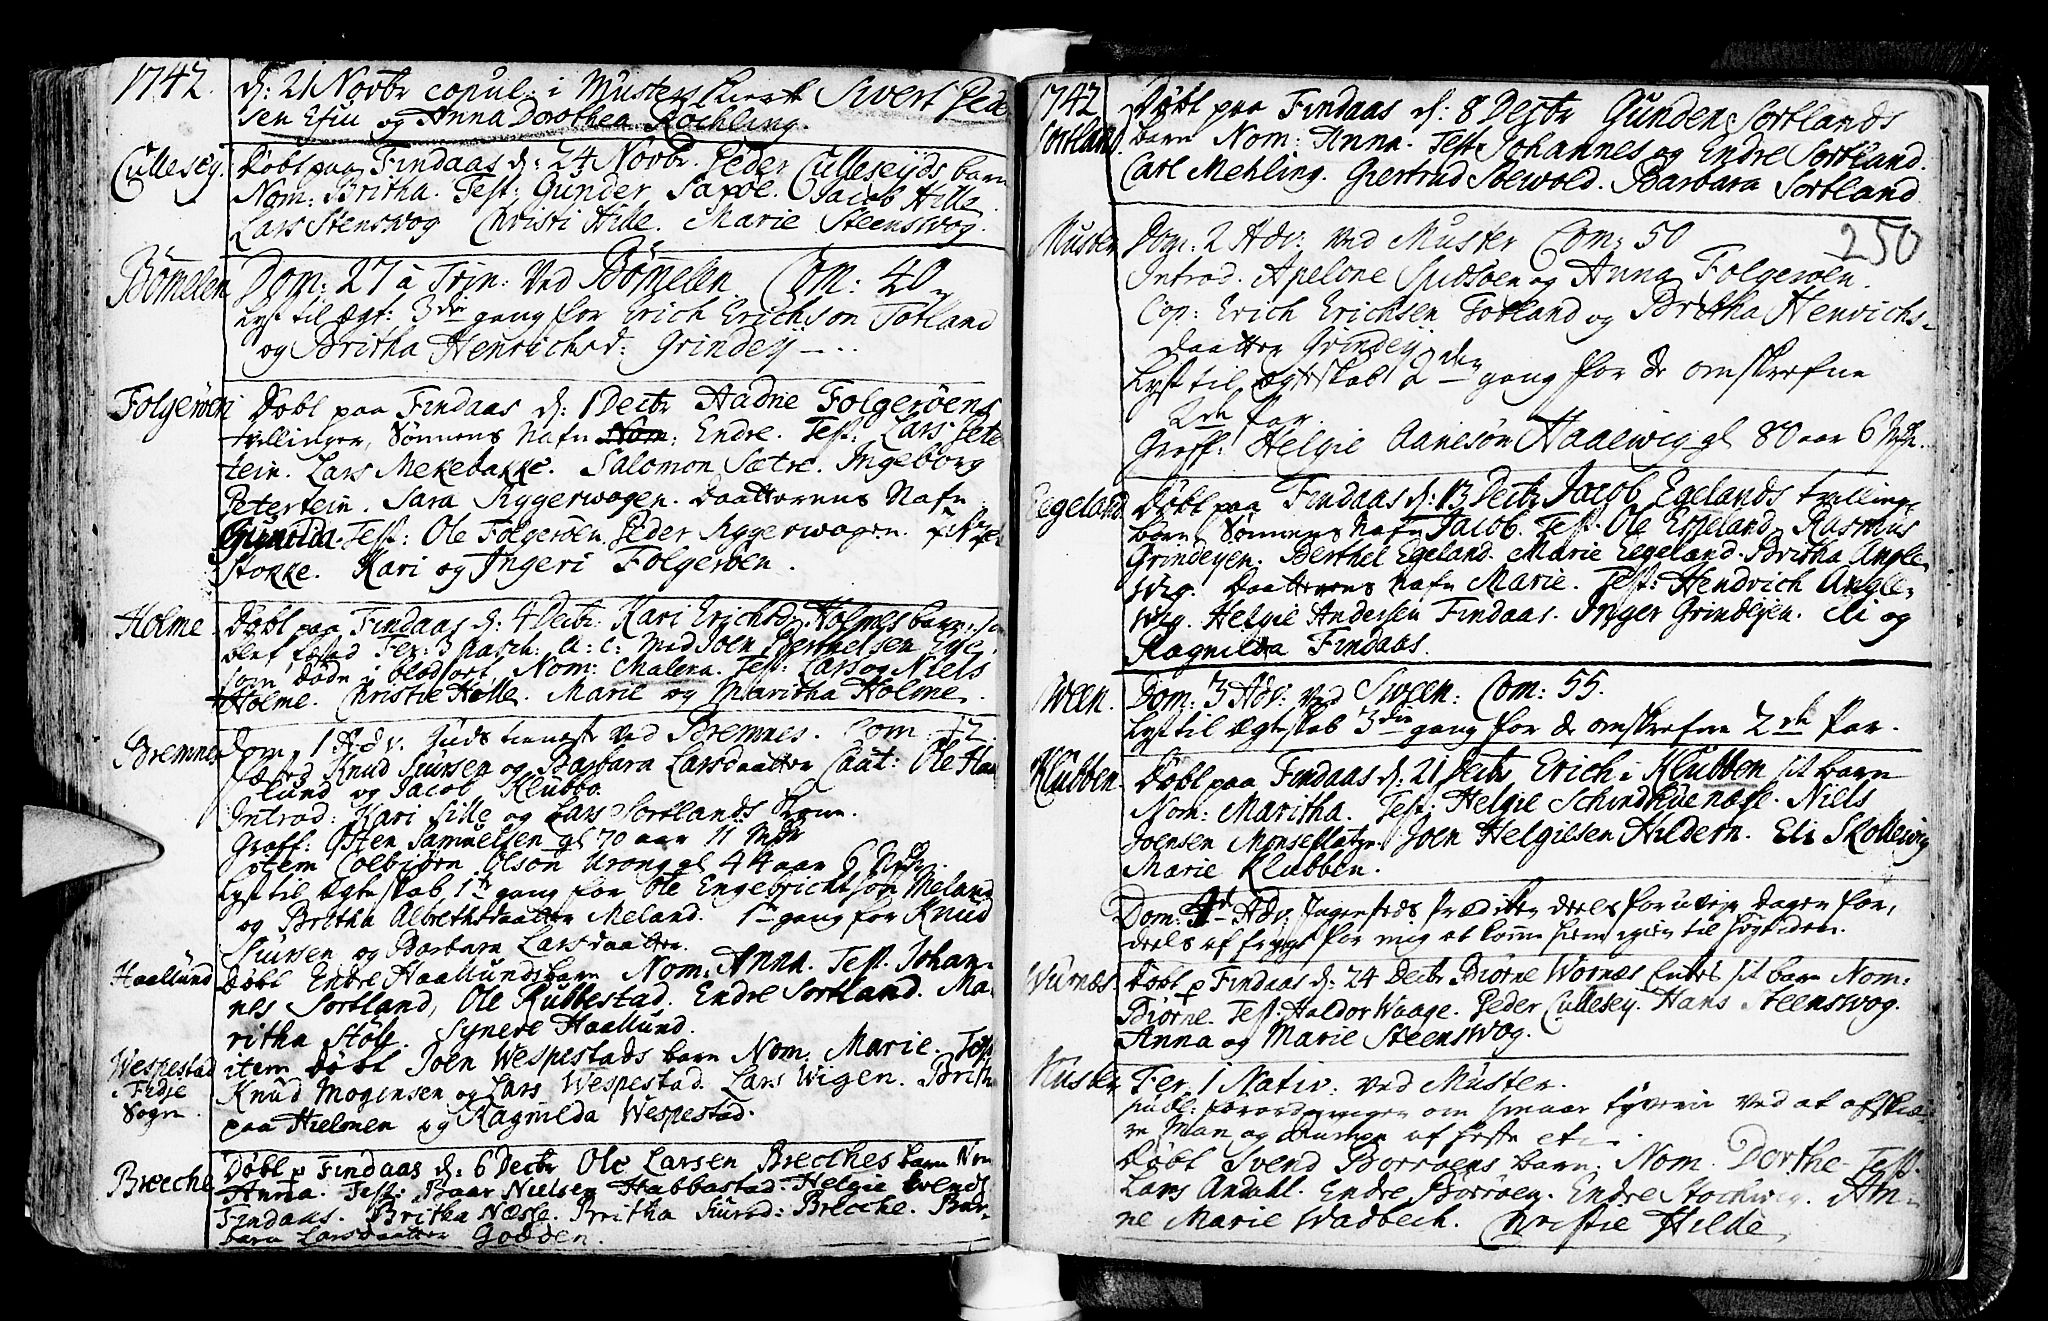 1742. d: 21 Novbr copul: i Musters Kierke Sivert Peder
sen Efiu og Anna Dorothea Röchling.
Cullesey. Døbt paa Findaas d: 24 Novbr. Peder Culleseyds barn
Nom: Britha. Test: Gunder Sapöe. Jacob Hille
Lars Stenswog Christi Hille. Marie Steenswog.
Bømelen Dom: 27 à Trin: Ved Bømelen Com: 40.
Lyst til Ægt: 3die gang for Erich Erichson Totland
og Britha Henrichsd: Grindey
Folgerøen Døbt paa Findaas d: 1 Decbr Hadne Folgerøens
tvillinger, Sønnens Nafn Nom: Endre. Test: Lars Peter
tein. Lars Mekebakke. Salomon Sætre. Ingeborg
Petertein. Sara Ryggerwogen. Daatterens Nafn
Gunilda. Test: Ole Folgerøen, Peder Ryggerwogen.
Stokke. Kari og Ingeri Folgerøen.
Holme. Døbt paa Findaas d: 4 Decbr: Kari Erichsd: Holmes barn,
blef fæsted Fer: 3 Pasch: a: c: med Joen Berthelsen
som døde i blodsott, Nom: Malena. Test: Lars og Niels
Holme. Christie Hille. Marie og Maritha Holme.
Bremnes Dom. 1 Adv. Gudstieneste ved Bremnes. Com: 72
fæsted Knud Siursen og Barbara Larsdaatter Caut: Ole Haa
lund og Jacob Klubbo.
Introd: Kari Lille og Lars Sortlands Kone.
Groff: Østen Samuelsen gl 70 aar 11 Mdr
item Colbiørn Olson Urong gl 44 aar 6 Mdr.
Lyst til Ægteskab 1te gang for Ole Engebrichtson Meland
og Britha Albrethsdaatter Meland. 1te gang for Knud
Siursen og Barbara Larsdaatter.
Haallund Døbt Endre Haallunds barn Nom: Anna. Test. Johan-
nes Sortland, Ole Rubbestad. Endre Sortland. Ma-
ritha Støle. Synere Haallund.
Wespestad item Døbt Joen Wespestads barn Nom: Marie. Test
Fedje Knud Mogensen og Lars Wespestad. Lars Wigen. Brith
Sogn. paa Hielmen og Ragnilda Wespestad.
Brecche Døbt p Findaas d: 6 Decbr Ole Larsen Brecches barn Nom
Anna. Test: Baar Nielsen Habbestad. Helgie Svends
Findaas. Britha Næsse. Britha Siursd: Brecche. Bar-
bara Larsdaatter Godøen.
1742 Døbt paa Findaas d: 8 Decbr Gunden Sortlands
Sortland. barn Nom: Anna. Test Johannes og Endre Sortland.
Carl Mehling. Giertrud Soewold. Barbara Sortland
250
Muster Dom: 2 Adv: ved Muster Com: 50
Introd. Apelone Spidsøen og Anna Folgerøen.
Cop: Erich Erichsen Totland og Britha Henrichs-
daatter Grindey
Lyst til Ægteskab 2den gang for de omskrefne
2de Par.
Groff: Helgie Aanesøn Haalewig gl 80 aar 6 Mdr.
Eegeland Døbt paa Findaas d: 13 Decbr Jacob Egelands tvilling
børn, Sønnens Nafn Jacob. Test. Ole Espeland. Rasmus
Grindeyen. Berthel Egeland. Marie Eegeland. Britha Angle
wig. Daatterens Nafn Marie. Test: Hendrich Angle-
wig. Helgie Andersen Findaas. Inger Grindeyen. Eli og
Ragnilda Findaas.
Sween. Dom: 3 Adv: ved Sween: Com: 55.
Lyst til Ægteskab 3die gang for de omskrefne 2de Par.
Klubben. Døbt paa Findaas d: 21 Decbr Erich i Klubben sit barn
Nom: Maritha. Test: Helgie Schindhuenæse. Niels
Joensen Monseplatze. Joen Helgiesen Hildern. Eli Skollewig
Marie Klubben.
Dom: 4de Adv: Ingensteds Prædiken deels for uveje dagen for,
deels af frygt for mig at komme hiem igien til Høytiden.
Wurnes. Døbt p Findaas d: 24 Decbr Biørne Wornes sit barn Nom:
Biørne. Test: Haldor Waage. Peder Cullesey. Hans Steenswog.
Anna og Marie Steenswog.
Muster Fer: 1 Nativ: ved Muster.
publ: forordningen om smaae tyverie ved at afskiæ-
re Man og Rumpe af heste etc.
Døbt Svend Børrøens barn: Nom. Dorthe. Test.
Lars Andahl. Endre Børrøen. Endre Stockwig. An-
ne Marie Wadbech. Christie Hilde.